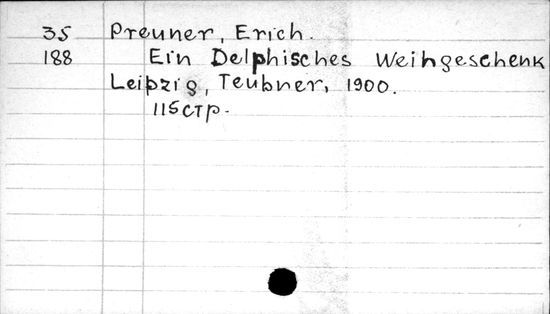 35 Preuner, Erich.
188 Ein Delphisches Weihgeschenk
Leipzig, Teubner, 1900.
115 стр.